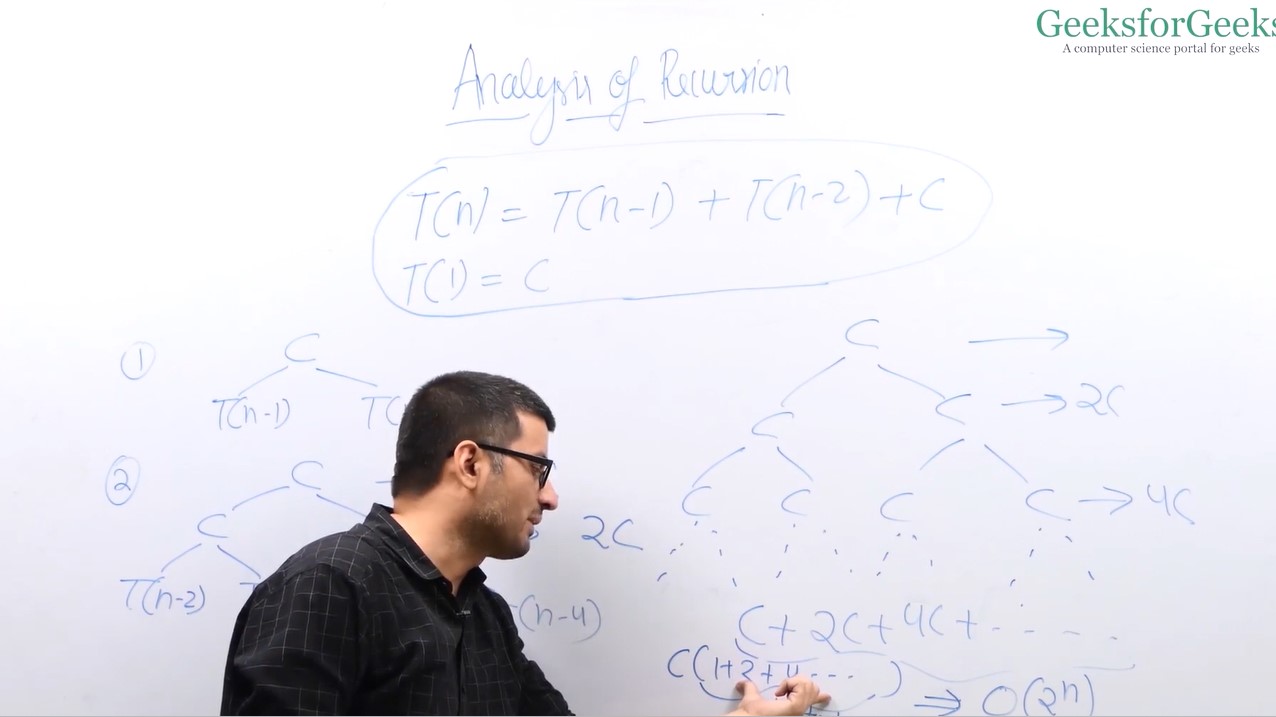 GeeksforGeeks
A computer science portal for geeks
Analysis of Recursion
T(n) = T(n-1) + T(n-2) + C
T(1) = C
① C
T(n-1) T(
② C
C 2C
T(n-2) (n-4)
C →
C C → 2C
C C C C → 4C
C + 2C + 4C + - - - - .
C(1+2+4 - - - ) ⇒ O(2ⁿ)